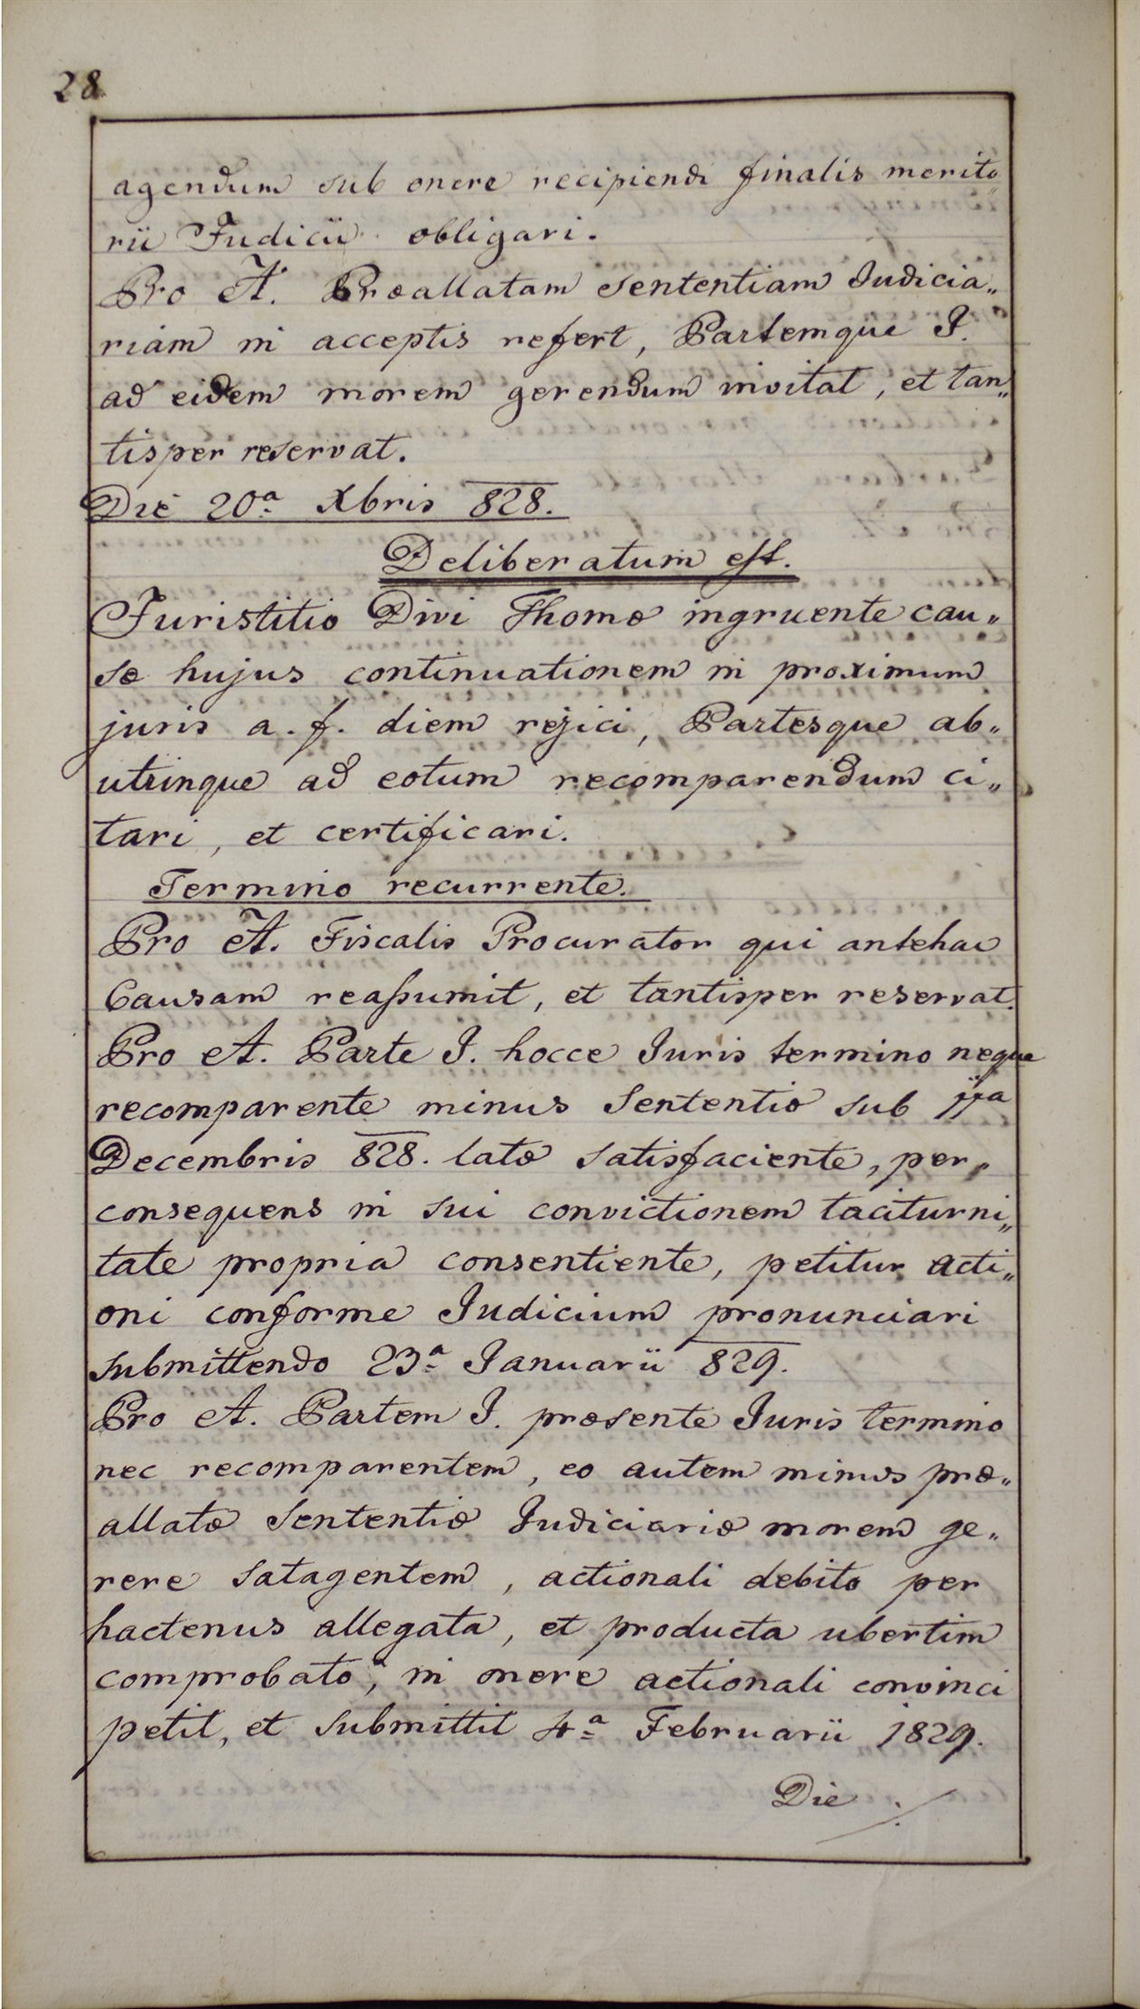 28
agendum sub onere recipiendi finalis merito„
rii Judicii obligari.
Pro A. Præallatam Sententiam Judicia„
riam in acceptis refert, Partemque I.
ad eidem morem gerendum invitat, et tan„
tisper reservat.
Die 20ª Xbris 828.
Deliberatum est.
Juristitio Divi Thomæ ingruente cau„
sæ hujus continuationem in proximum
juris a. f. diem rejici, Partesque ab„
utrinque ad eotum recomparendum ci„
tari, et certificari.
Termino recurrente.
Pro A. Fiscalis Procurator qui antehac
Causam reassumit, et tantisper reservat.
Pro A. Parte I. hocce Juris termino neque
recomparente minus Sententiæ sub 11ª
Decembris 828. latæ satisfaciente, per„
consequens in sui convictionem taciturni„
tate propria consentiente, petitur acti„
oni conforme Judicium pronunciari
submittendo 23ª Januarii 829.
Pro A. Partem I. præsente Juris termino
nec recomparentem, eo autem minus præ„
allatæ Sententiæ Judiciariæ morem ge„
rere satagentem, actionali debito per
hactenus allegata, et producta ubertim
comprobato, in onere actionali convinci
petit, et submittit 4ª Februarii 1829.
Die